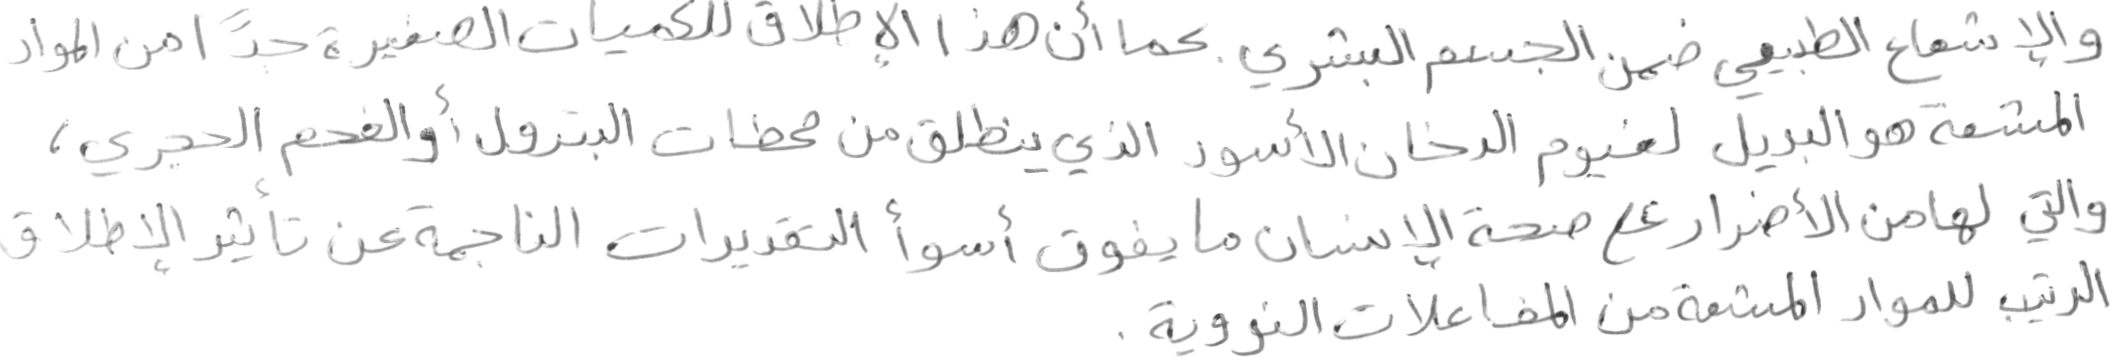 والإشعاع الطبيعي ضمن الجسم البشري. كما أن هذا الإطلاق للكميات الصغيرة جدًا من المواد
المشعة هو البديل لغيوم الدخان الأسود الذي ينطلق من محطات البترول أو الفحم الحجري،
والتي لها من الأضرار على صحة الإنسان ما يفوق أسوأ التقديرات الناجمة عن تأثير الإطلاق
الرتيب للمواد المشعة من المفاعلات النووية.